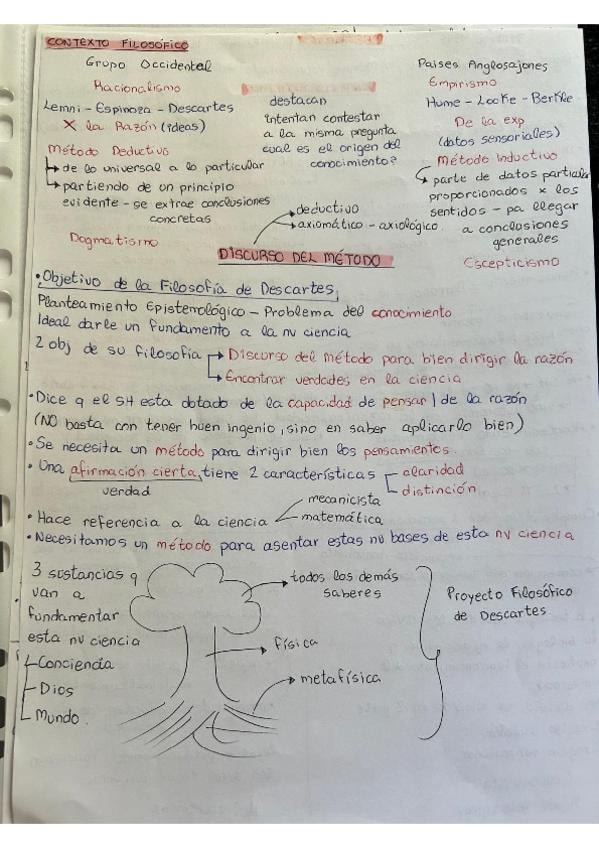 CONTEXTO FILOSÓFICO
Grupo Occidental
Racionalismo
Lemni - Espinoza - Descartes
x la Razón (ideas)
Método Deductivo
↳ de lo universal a lo particular
↳ partiendo de un principio
evidente - se extrae conclusiones
concretas
Dogmatismo
destacan
intentan contestar
a la misma pregunta
cual es el origen del
conocimiento?
Paises Anglosajones
Empirismo
Hume - Locke - Berkle
De la exp
(datos sensoriales)
Método Inductivo
↳ parte de datos particular
proporcionados x los
sentidos - pa llegar
a conclusiones
generales
Escepticismo
→ deductivo
→ axiomático - axiológico
DISCURSO DEL MÉTODO
• Objetivo de la Filosofía de Descartes
Planteamiento Epistemológico - Problema del conocimiento
Ideal darle un fundamento a la nv ciencia
2 obj de su filosofía → Discurso del método para bien dirigir la razón
→ Encontrar verdades en la ciencia
• Dice q el SH esta dotado de la capacidad de pensar / de la razón
(NO basta con tener buen ingenio, sino en saber aplicarlo bien)
• Se necesita un método para dirigir bien los pensamientos.
• Una afirmación cierta, tiene 2 características - claridad
verdad - distinción
• Hace referencia a la ciencia < mecanicista
matemática
• Necesitamos un método para asentar estas nv bases de esta nv ciencia
3 sustancias q
van a
fundamentar
esta nv ciencia
Conciencia
Dios
Mundo
→ todos los demás
saberes
→ física
→ metafísica
Proyecto Filosófico
de Descartes